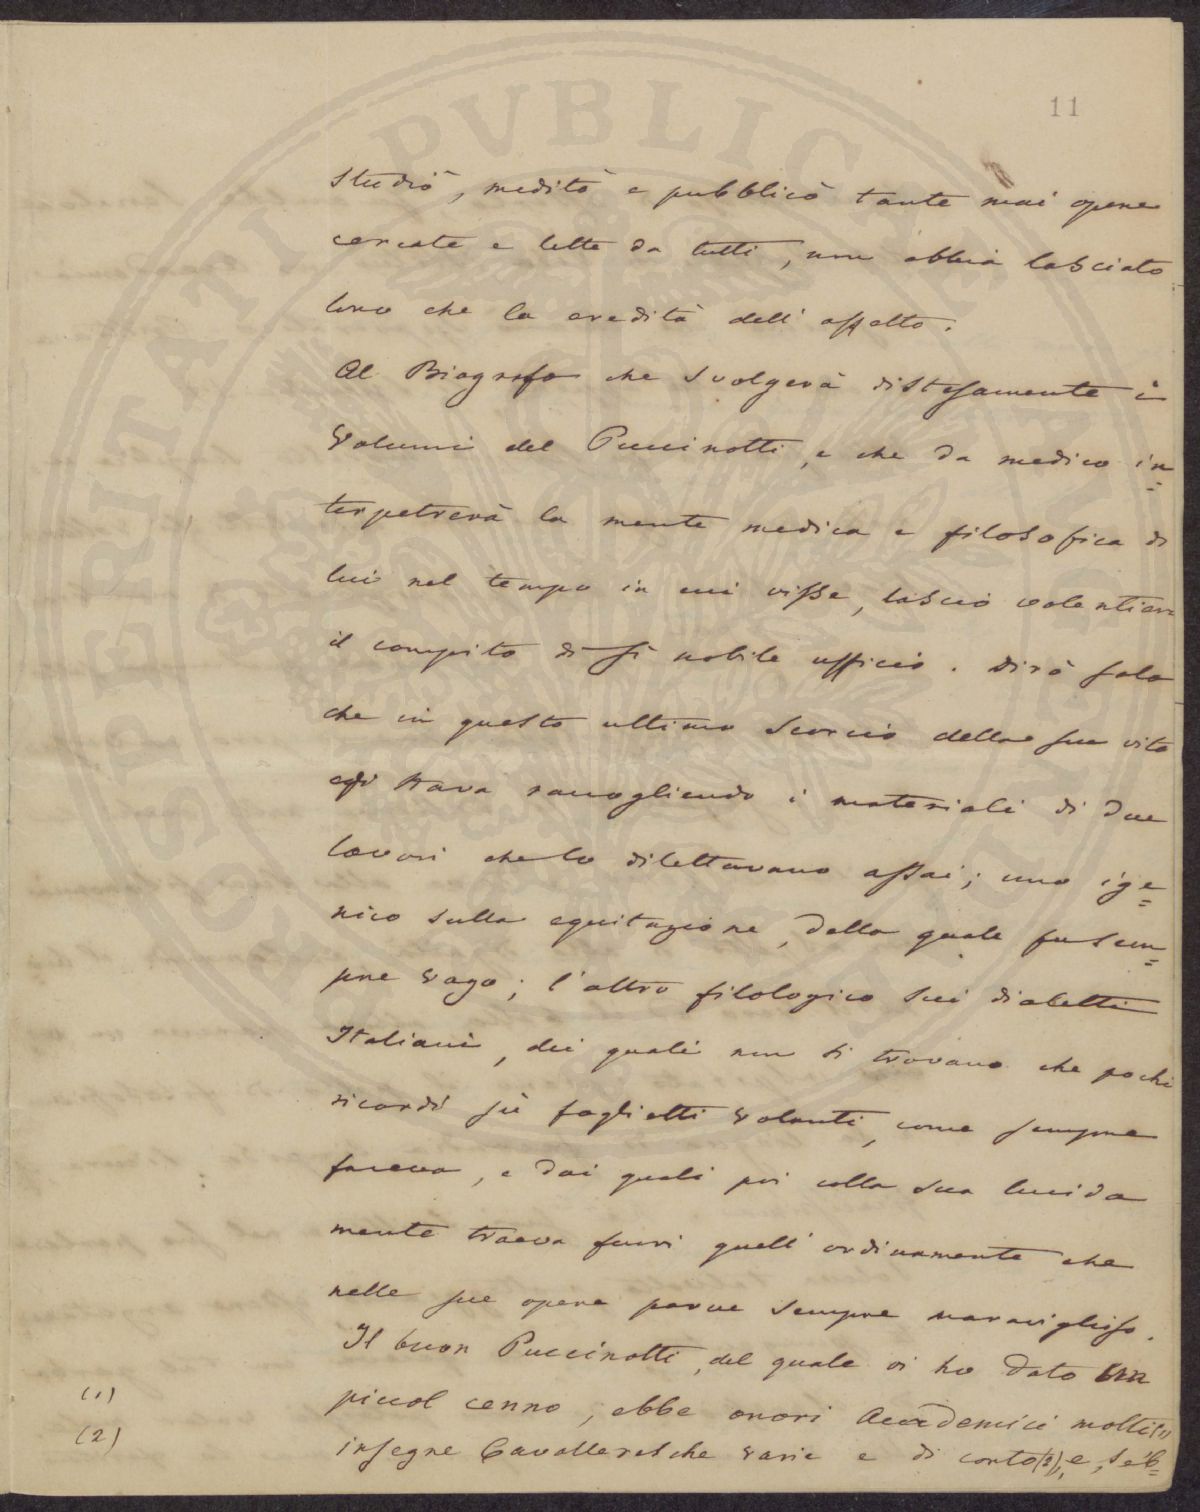 11
studiò, meditò e pubblicò tante mai opere
cercate e lette da tutti, non abbia lasciato
loro che la eredità dell' affetto.
Al Biografo che svolgerà distesamente i
Volumi del Puccinotti, e che da medico in=
terpetrerà la mente medica e filosofica di
lui nel tempo in cui visse, lascio volentieri
il compito di sì nobile ufficio. Dirò solo
che in questo ultimo scorcio della sua vita
stava raccogliendo i materiali di due
lavori che lo dilettavano assai; uno ige=
nico sulla equitazione, della quale fu sem=
pre vago; l'altro filologico sui dialetti
Italiani, dei quali non si trovano che pochi
ricordi sù foglietti volanti, come sempre
faceva, e dai quali poi colla sua lucida
mente traeva fuori quell' ordinamento che
nelle sue opere parve sempre maraviglioso.
Il buon Puccinotti, del quale vi ho dato un
(1) piccol cenno, ebbe onori Accademici molti (1)
(2) insegne Cavalleresche varie e di conto (2), e, seb=